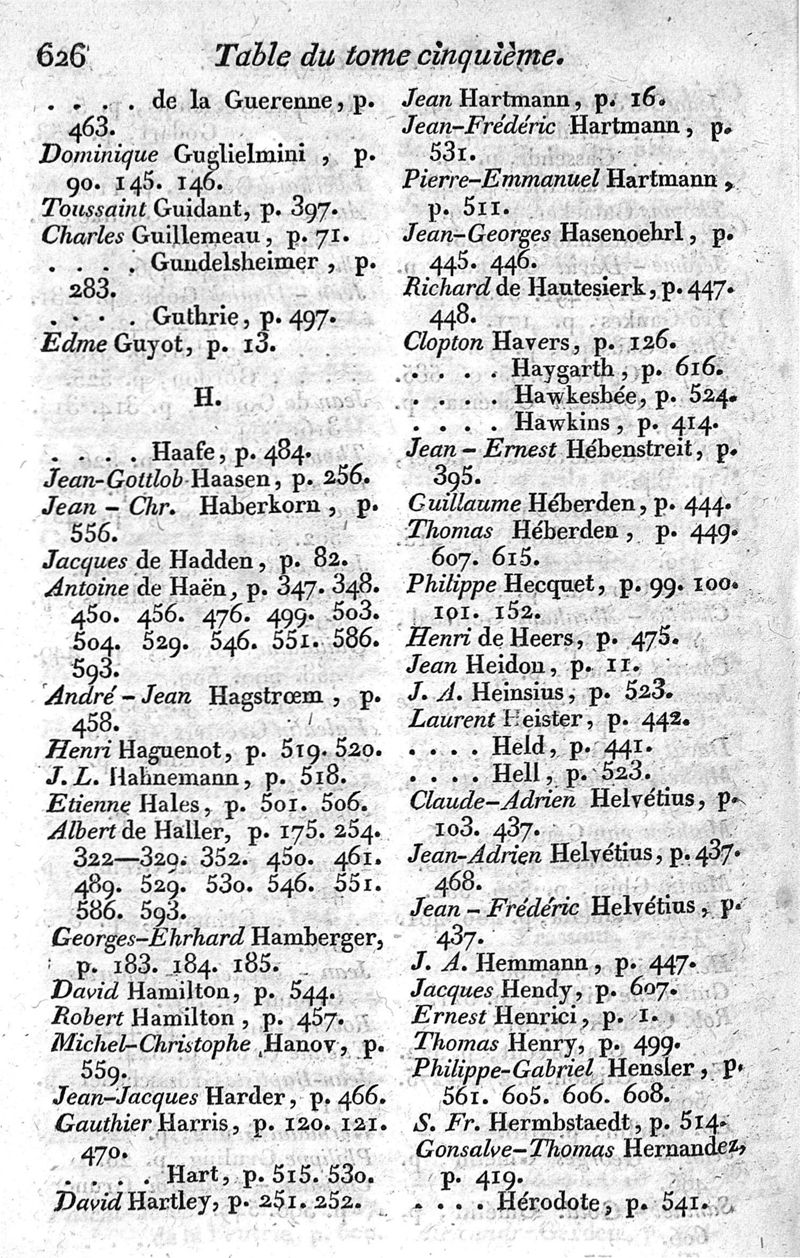 626 Table du tome cinquième.
. . . . de la Guerenne, p.
463.
Dominique Guglielmini , p.
90. 145. 146.
Toussaint Guidant, p. 397.
Charles Guillemeau, p. 71.
. . . . Gundelsheimer , p.
283.
. . . . Guthrie, p. 497.
Edme Guyot, p. 13.
H.
. . . . Haafe, p. 484.
Jean-Gottlob Haasen, p. 256.
Jean – Chr. Haberkorn , p.
556.
Jacques de Hadden, p. 82.
Antoine de Haën, p. 347. 348.
450. 456. 476. 499. 503.
504. 529. 546. 551. 586.
593.
André – Jean Hagstrœm , p.
458.
Henri Haguenot, p. 519. 520.
J. L. Hahnemann, p. 518.
Etienne Hales, p. 501. 506.
Albert de Haller, p. 175. 254.
322—329. 352. 450. 461.
489. 529. 530. 546. 551.
586. 593.
Georges-Ehrhard Hamberger,
p. 183. 184. 185.
David Hamilton, p. 544.
Robert Hamilton , p. 457.
Michel-Christophe Hanov, p.
559.
Jean-Jacques Harder, p. 466.
Gauthier Harris, p. 120. 121.
470.
. . . . Hart, p. 515. 530.
David Hartley, p. 251. 252.
Jean Hartmann, p. 16.
Jean-Frédéric Hartmann, p.
531.
Pierre-Emmanuel Hartmann ,
p. 511.
Jean-Georges Hasenoehrl, p.
445. 446.
Richard de Hautesierk, p. 447.
448.
Clopton Havers, p. 126.
. . . . Haygarth, p. 616.
. . . . Hawkesbée, p. 524.
. . . . Hawkins, p. 414.
Jean – Ernest Hébenstreit, p.
395.
Guillaume Héberden, p. 444.
Thomas Héberden, p. 449.
607. 615.
Philippe Hecquet, p. 99. 100.
101. 152.
Henri de Heers, p. 475.
Jean Heidon, p. 11.
J. A. Heinsius, p. 523.
Laurent Heister, p. 442.
. . . . Held, p. 441.
. . . . Hell, p. 523.
Claude-Adrien Helvétius, p.
103. 437.
Jean-Adrien Helvétius, p. 437.
468.
Jean – Frédéric Helvétius, p.
437.
J. A. Hemmann, p. 447.
Jacques Hendy, p. 607.
Ernest Henrici, p. 1.
Thomas Henry, p. 499.
Philippe-Gabriel Hensler, p.
561. 605. 606. 608.
S. Fr. Hermbstaedt, p. 514.
Gonsalve-Thomas Hernandez,
p. 419.
. . . . Hérodote, p. 541.